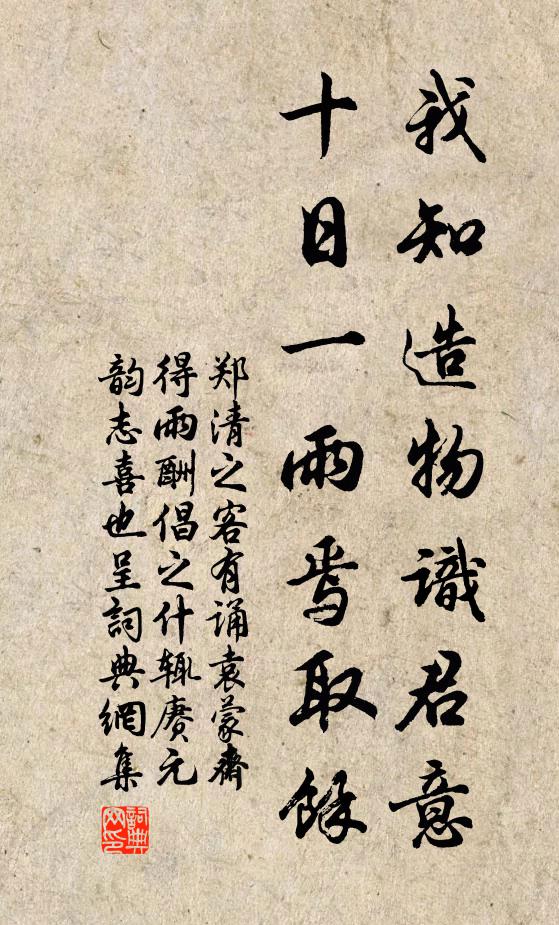 我知造物識君意
十日一雨焉取餘
郑清之客有诵袁蒙斋
得雨酬倡之什辄赓元
韵志喜也呈詞典網集
詞典网印